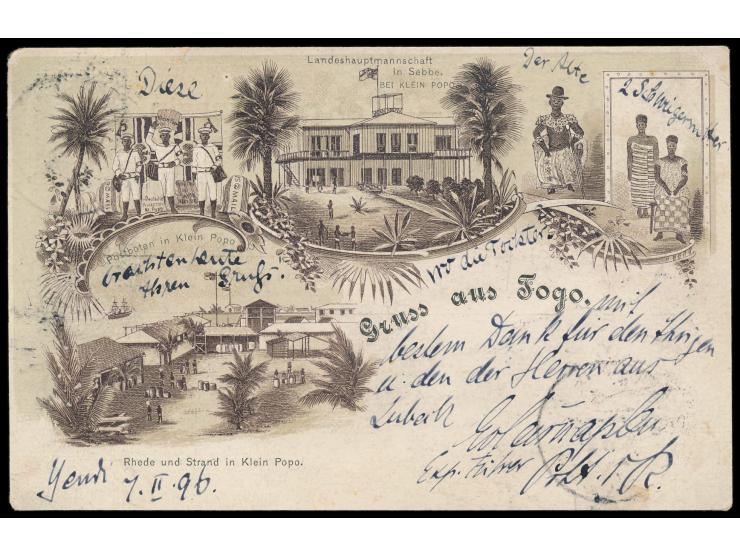 Landeshauptmannschaft
in Sebbe.
BEI KLEIN POPO
Diese
Der Alte
2 Schwiegermütter
Postboten in Klein Popo
brachten heute
Ihren Gruss.
wo die Töchter
Gruss aus Togo.
mit
bestem Dank für den Ihrigen
u. den der Herren aus
Lübeck
Rhede und Strand in Klein Popo.
Yendi
7. II. 96.
Exp. Führer